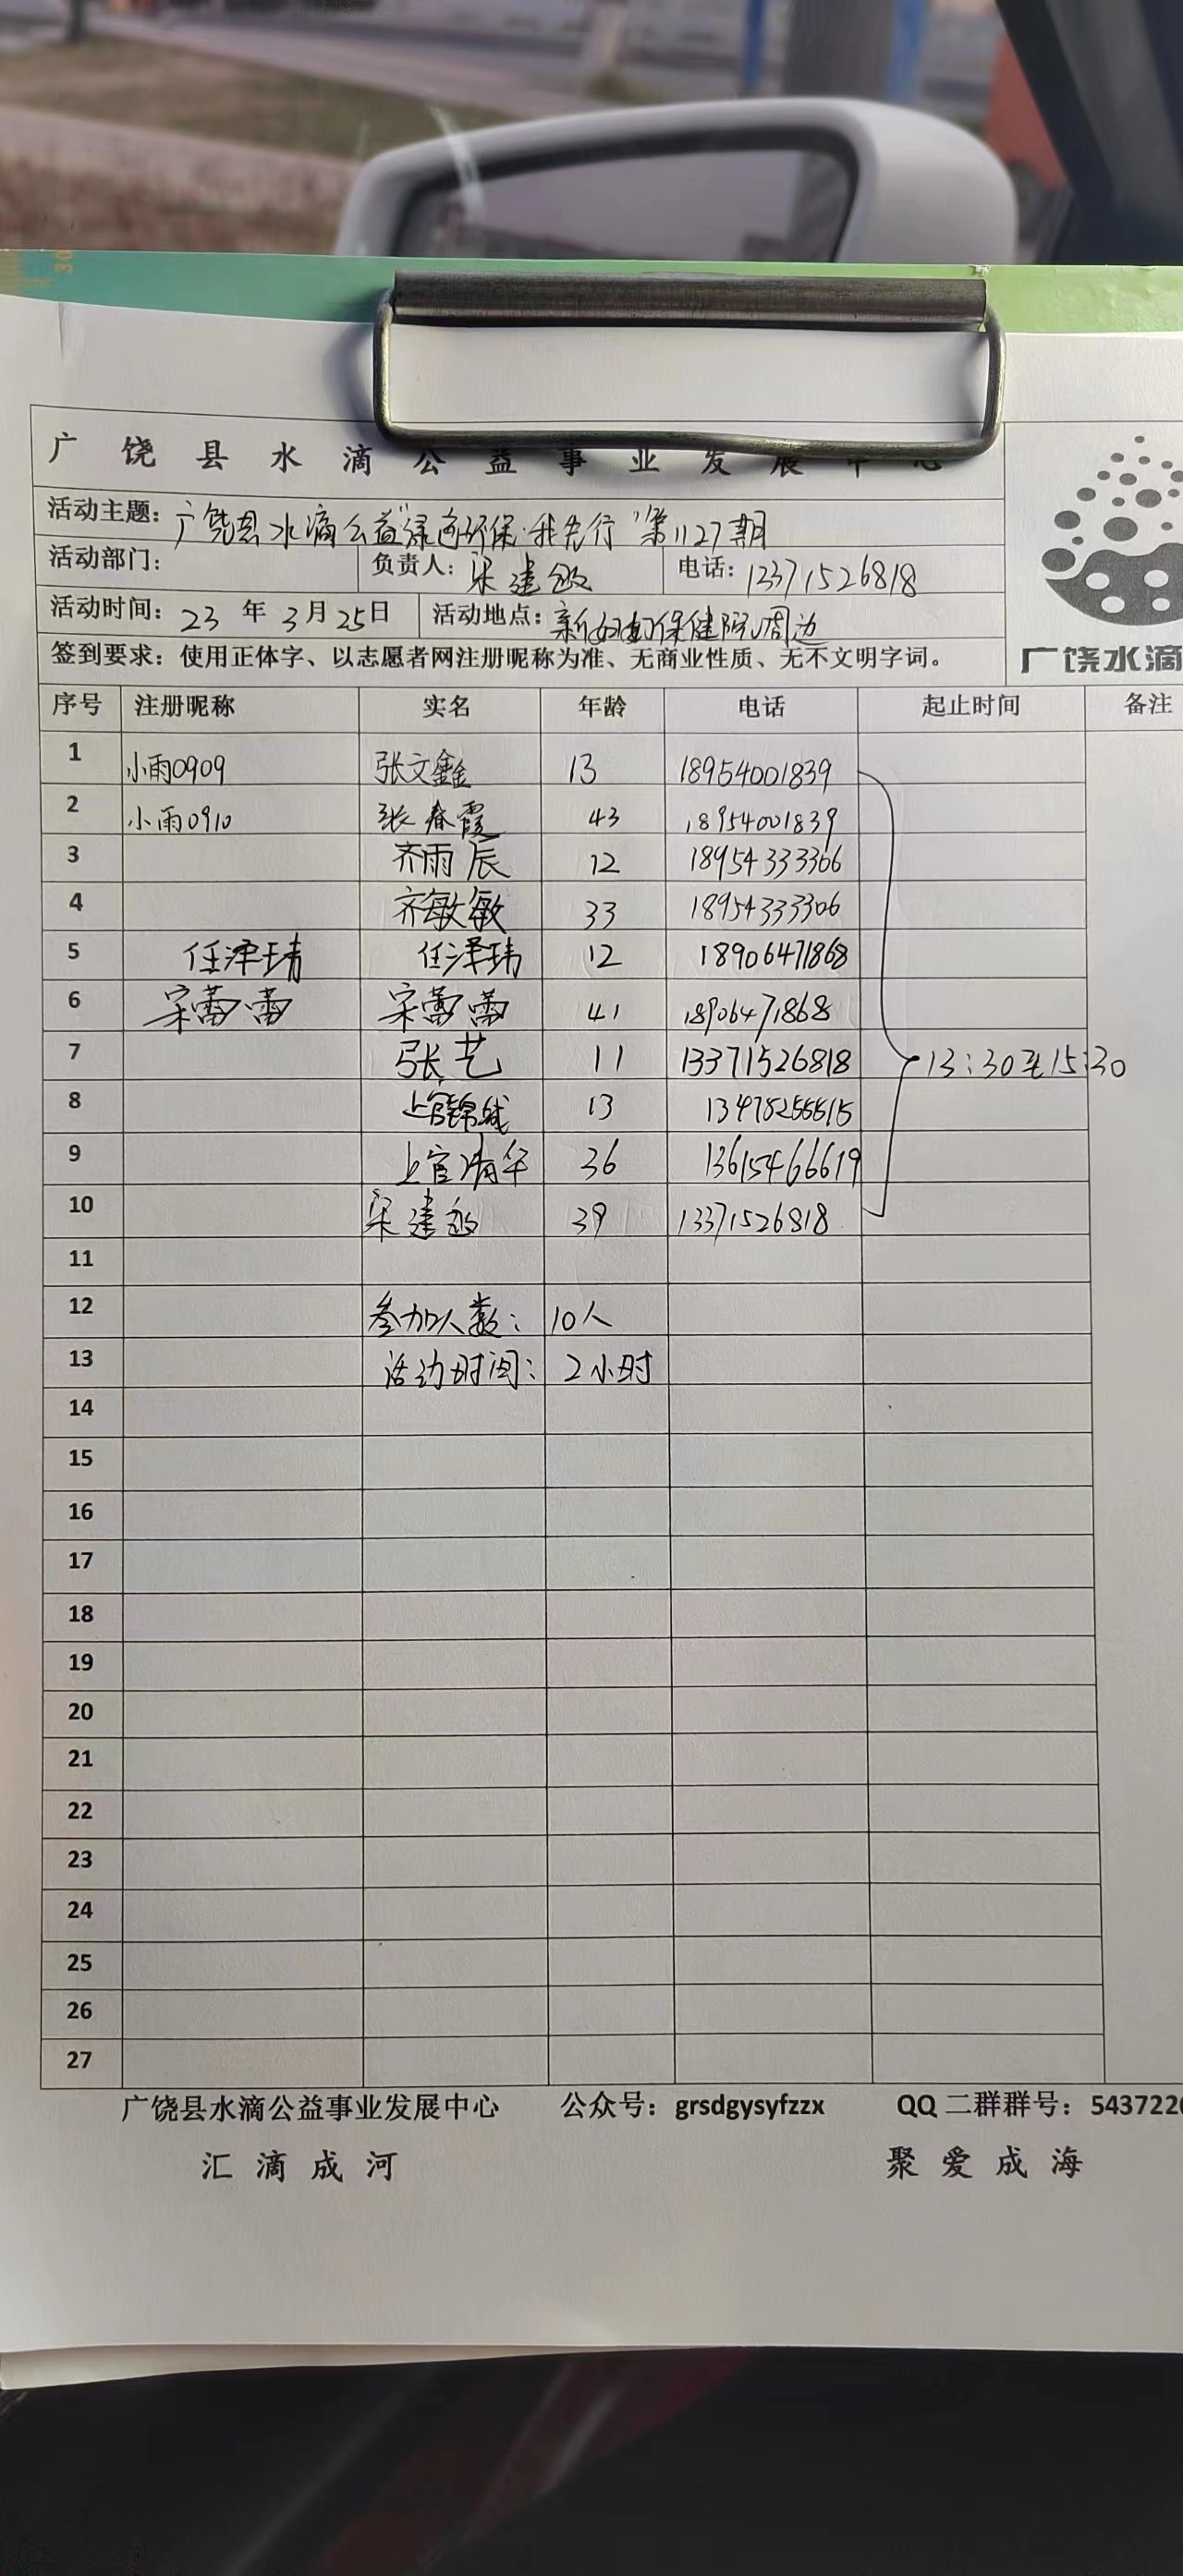 广饶县水滴公益事业发展中心
活动主题：广饶县水滴公益"绿色环保·我先行"第1127期
活动部门： 负责人：梁建敏 电话：13371526818
活动时间：23年3月25日 活动地点：新妇幼保健院周边
签到要求：使用正体字、以志愿者网注册昵称为准、无商业性质、无不文明字词。
广饶水滴
序号 注册昵称 实名 年龄 电话 起止时间 备注
1 小雨0909 张文鑫 13 18954001839
2 小雨0910 张春霞 43 18954001839
3 齐雨辰 12 18954333306
4 齐敏敏 33 18954333306
5 任泽玮 任泽玮 12 18906471868
6 宋蕾蕾 宋蕾蕾 41 18906471868
7 张艺 11 13371526818 13:30至15:30
8 上官锦 13
9 上官清华 36 13615466619
10 梁建敏 39 13371526818
11
12 参加人数： 10人
13 活动时间： 2小时
14
15
16
17
18
19
20
21
22
23
24
25
26
27
广饶县水滴公益事业发展中心 公众号：grsdgysyfzzx QQ二群群号：543722
汇滴成河 聚爱成海